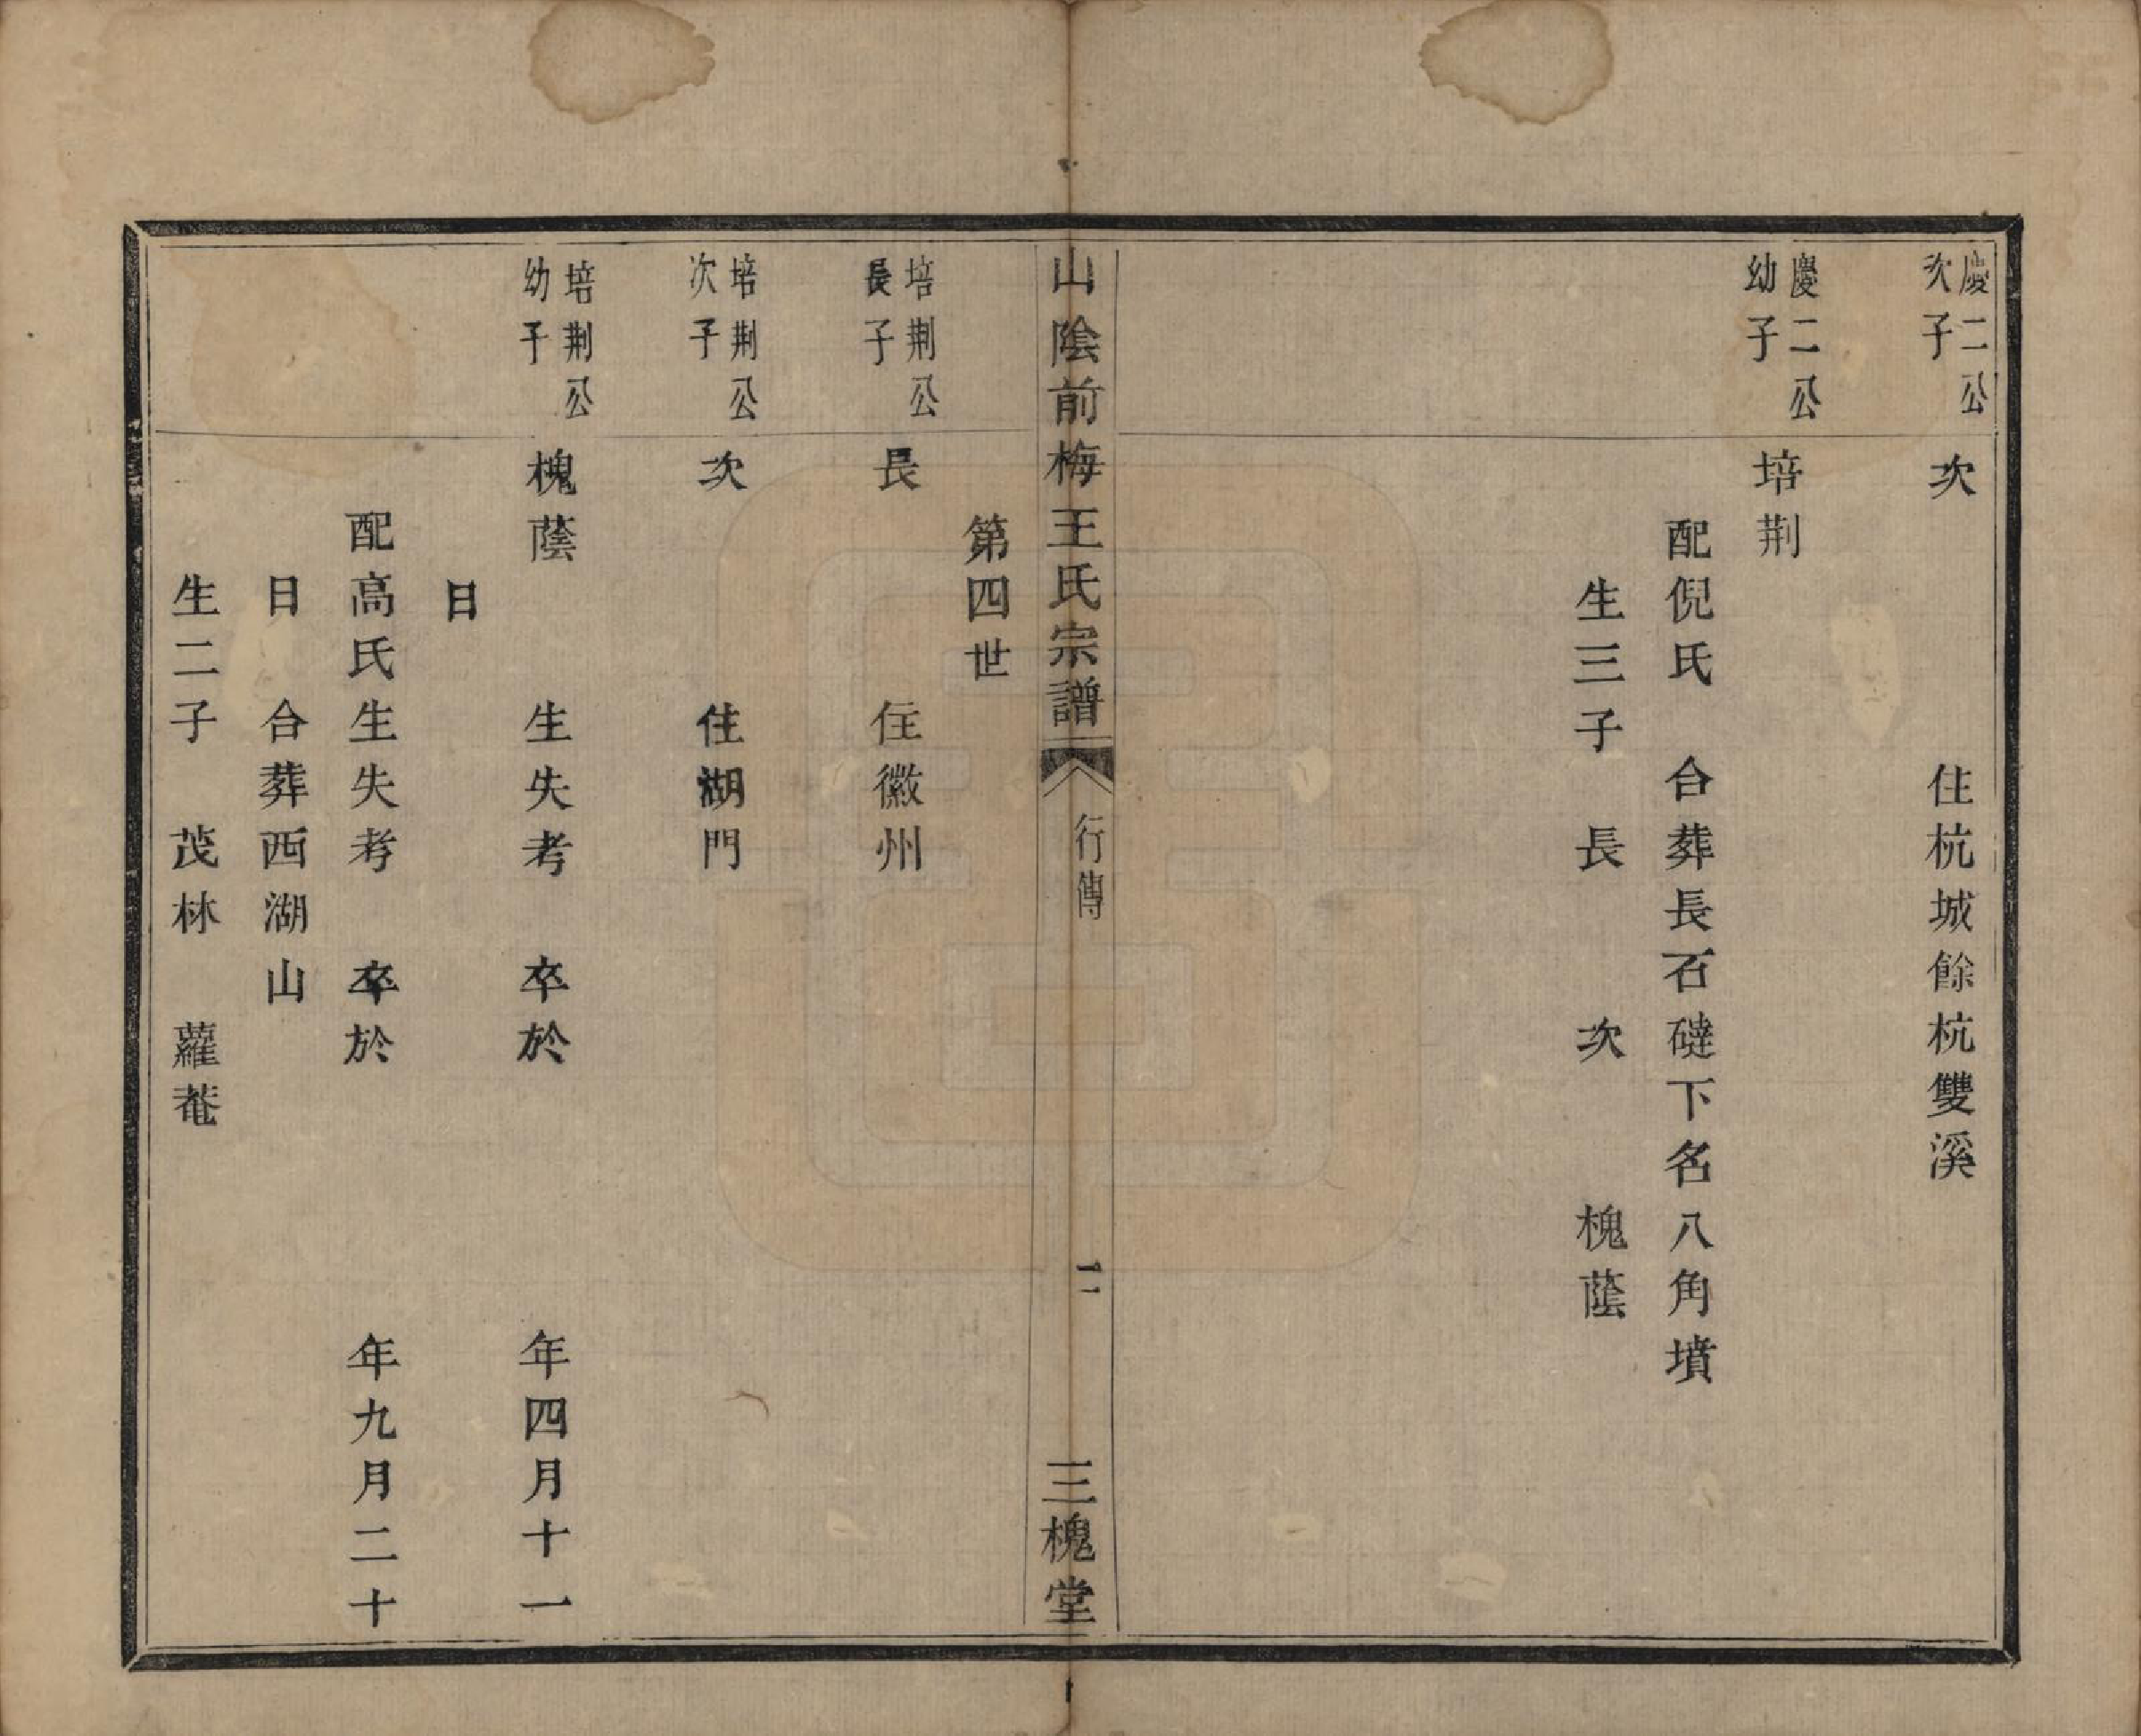 慶二公
次子
次　住杭城餘杭雙溪
慶二公
幼子
培荆
配倪氏　合葬長石磓下名八角墳
生三子　長　次　槐蔭
山陰前梅王氏宗譜　行傳　二　三槐堂
第四世
培荆公
長子
長　住徽州
培荆公
次子
次　住湖門
培荆公
幼子
槐蔭　生失考　卒於　年四月十一
日
配高氏生失考　卒於　年九月二十
日　合葬西湖山
生二子　茂林　蘿菴